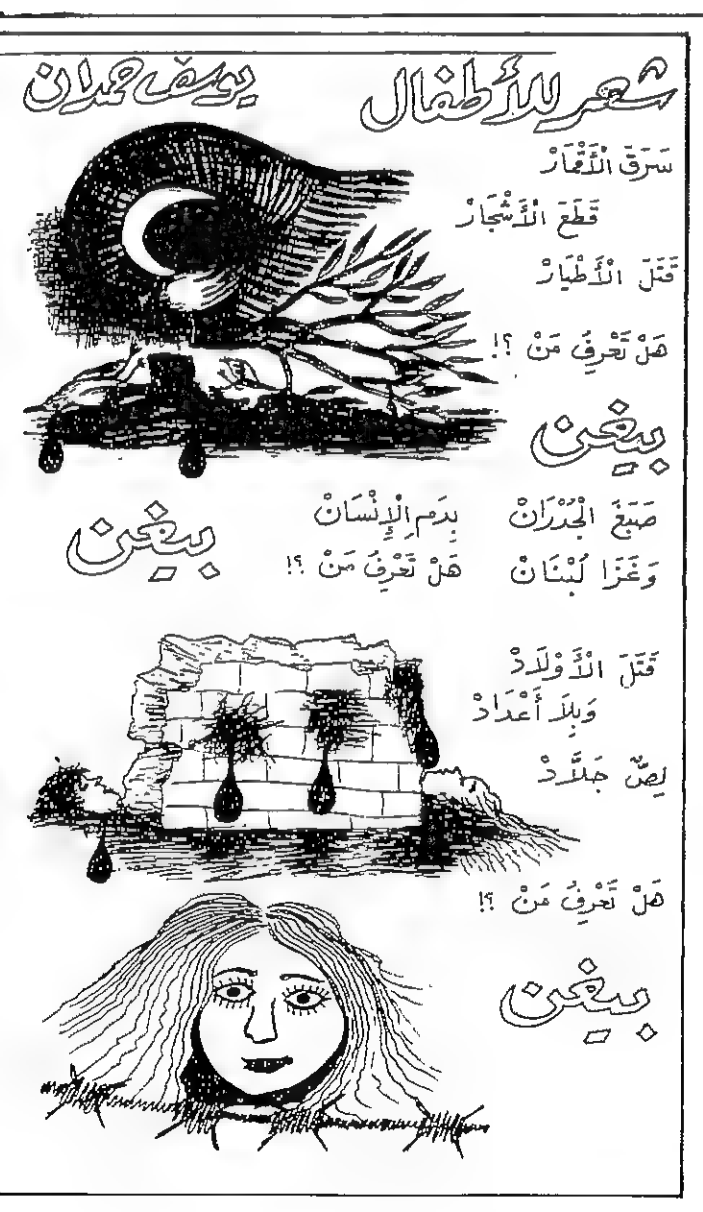 شعر للأطفال يوسف حمدان
سَرَقَ الْأَقْمَارْ
قَطَعَ الْأَشْجَارْ
قَتَلَ الْأَطْيَارْ
هَلْ تَعْرِفُ مَنْ ؟!
بيغن
صَبَغَ الْجُدْرَانْ بِدَمِ الْإِنْسَانْ
وَغَزَا لُبْنَانْ هَلْ تَعْرِفُ مَنْ ؟!
بيغن
قَتَلَ الْأَوْلَادْ
وَبِلَا أَعْدَادْ
لِصٌّ جَلَّادْ
هَلْ تَعْرِفُ مَنْ ؟!
بيغن